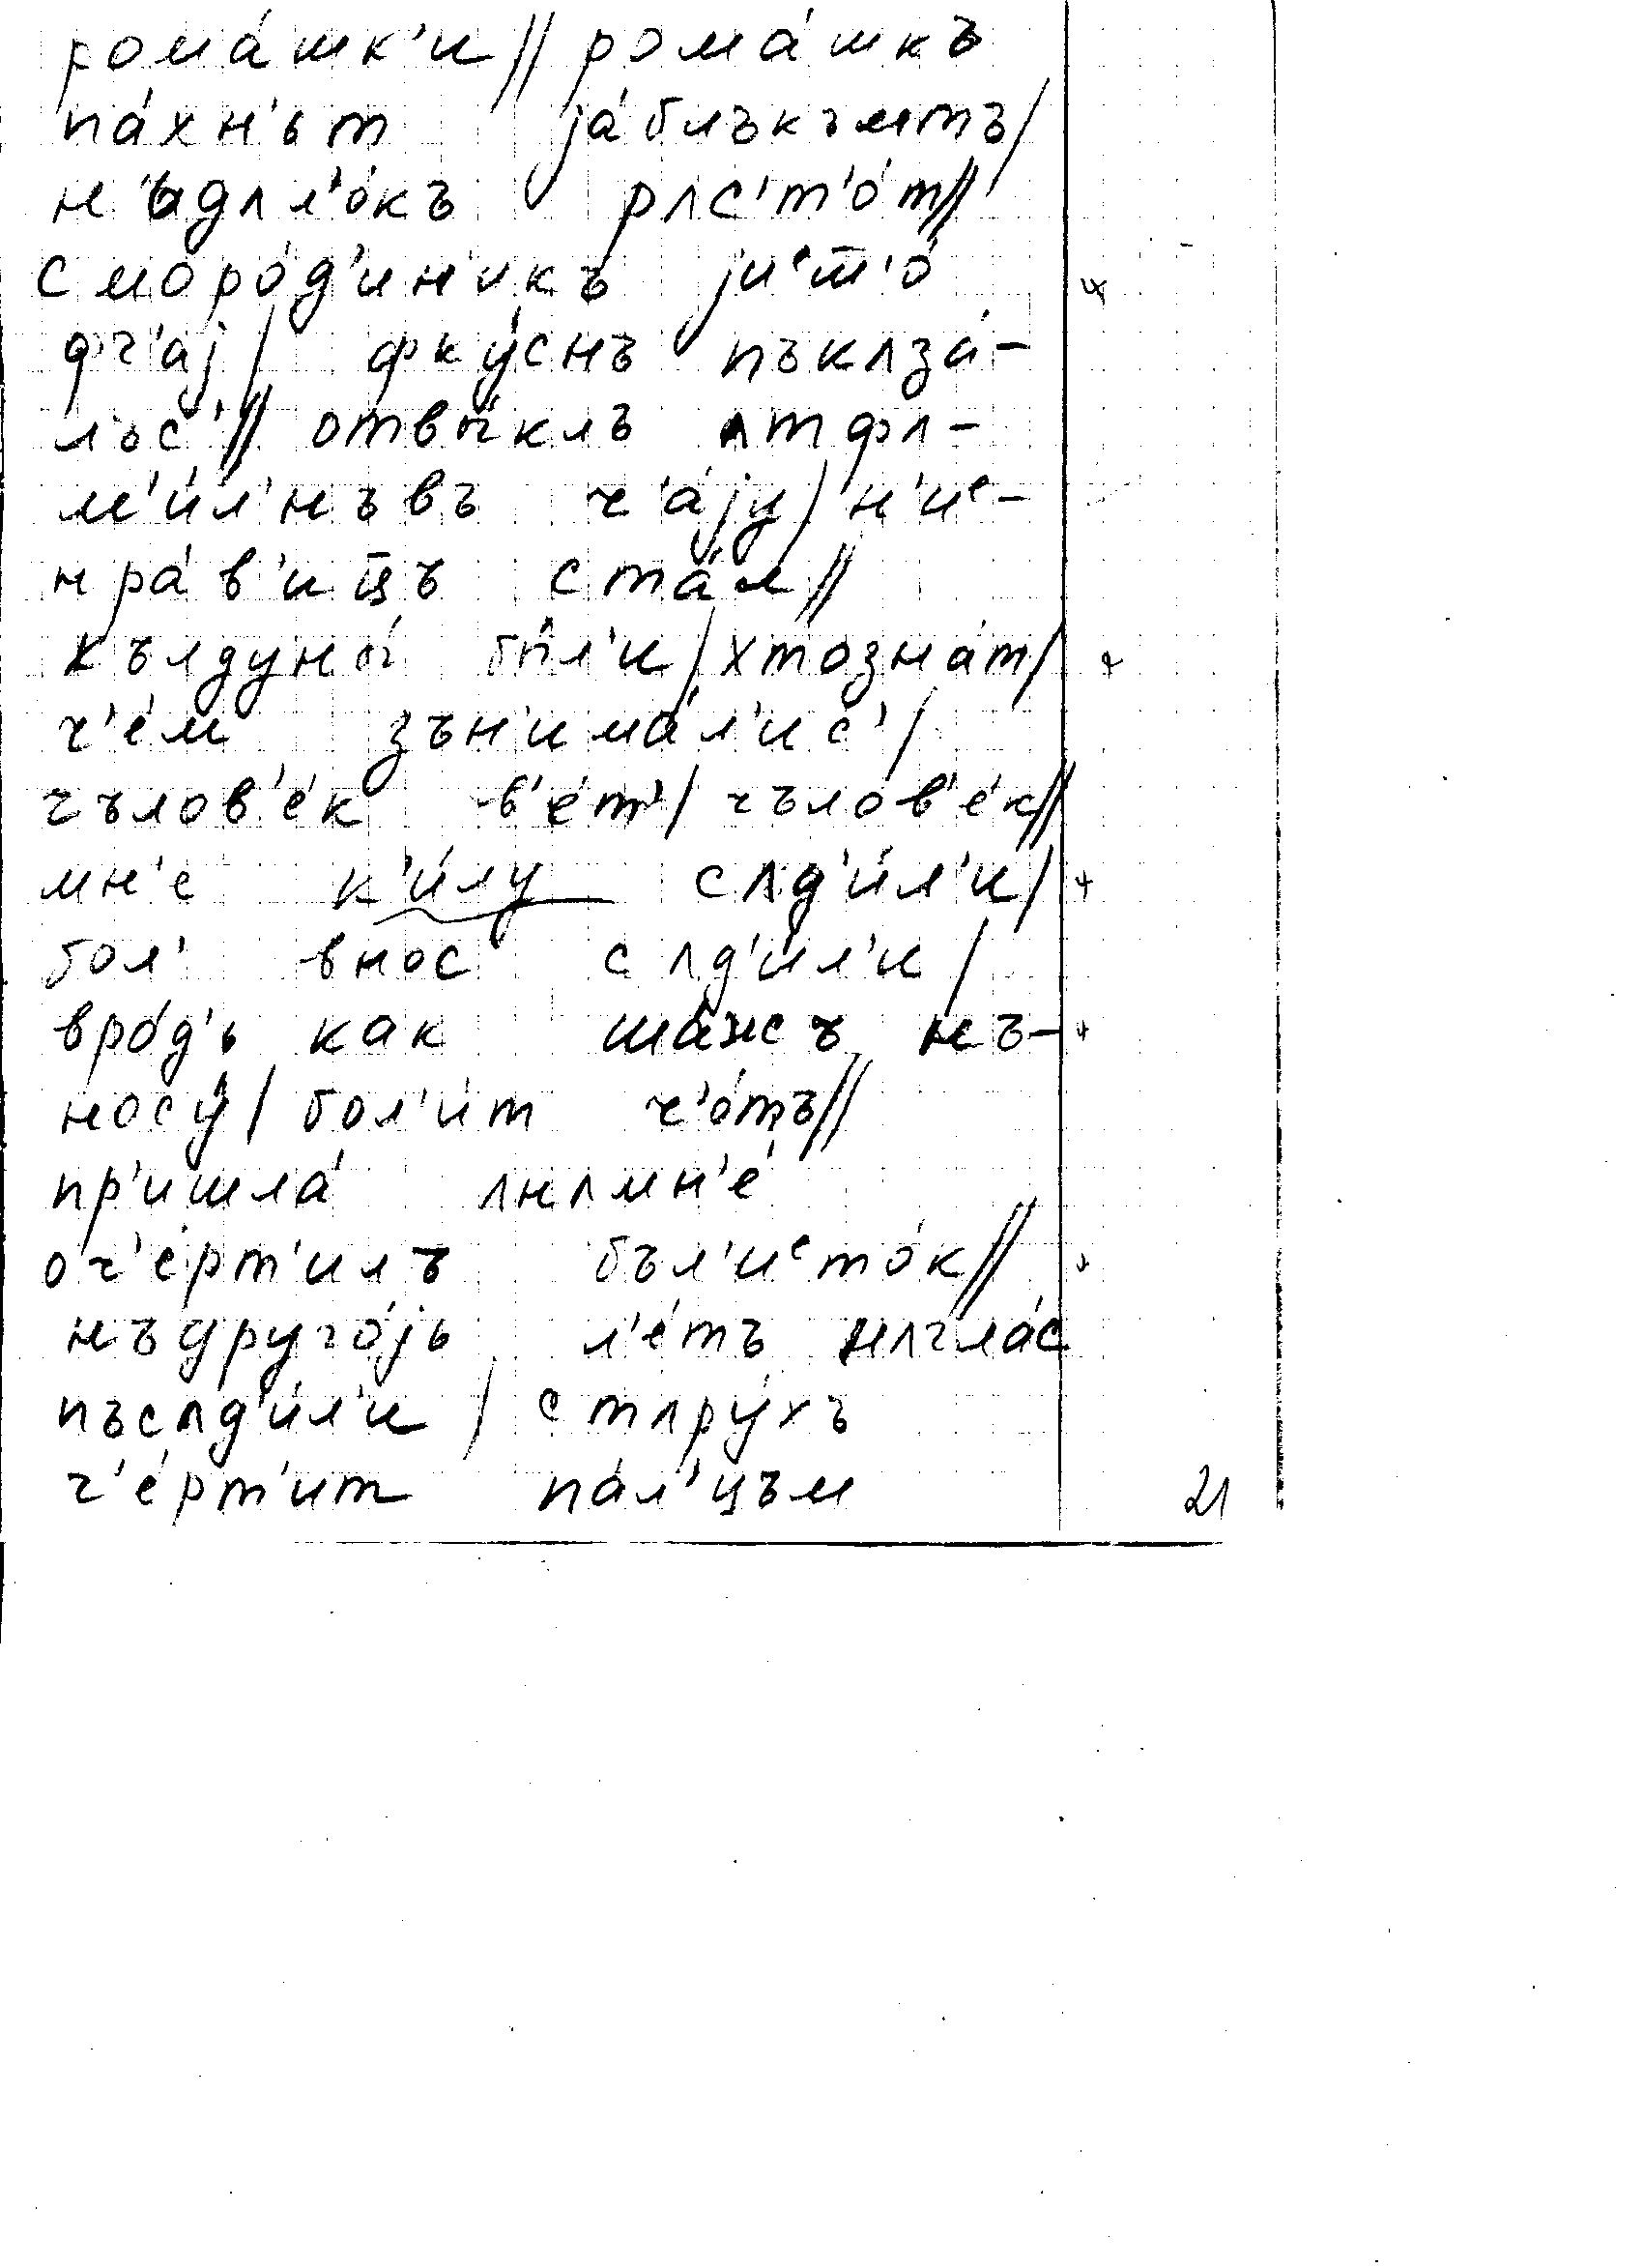 рома́шк'и // рома́шкъ
па́хн'ьт jа́блъкъмтъ /
н'ьдʌл'о́къ рʌс'т'о́т //
сморо́д'ин'икъ jиᵉт̅'о́
фч'аj / фку́снъ пъкʌза́-
лъс' // отвы́клъ ʌтфʌ-
м'и́л'нъвъ ч'а́jу / н'иᵉ-
нра́в'иц̅ъ ста́л //
кълдуны́ бы́л'и / хтозна́т /
ч'е́м зън'има́л'ис' /
чълов'е́к в'е́т' / чълов'е́к //
мн'е к'и́лу сʌд'и́л'и /
бол' внос сʌд'и́л'и /
вро́д'ь как ша́жъ нъ-
носу́ / бол'и́т ч'о́тъ //
пр'ишла́ ʌнʌмн'е́
оч'е́рт'илъ бъл'иᵉто́к //
нъдруго́jь л'е́тъ нʌгла́с
пъсʌд'и́л'и / стʌру́хъ
ч'е́рт'ит па́л'цъм
21